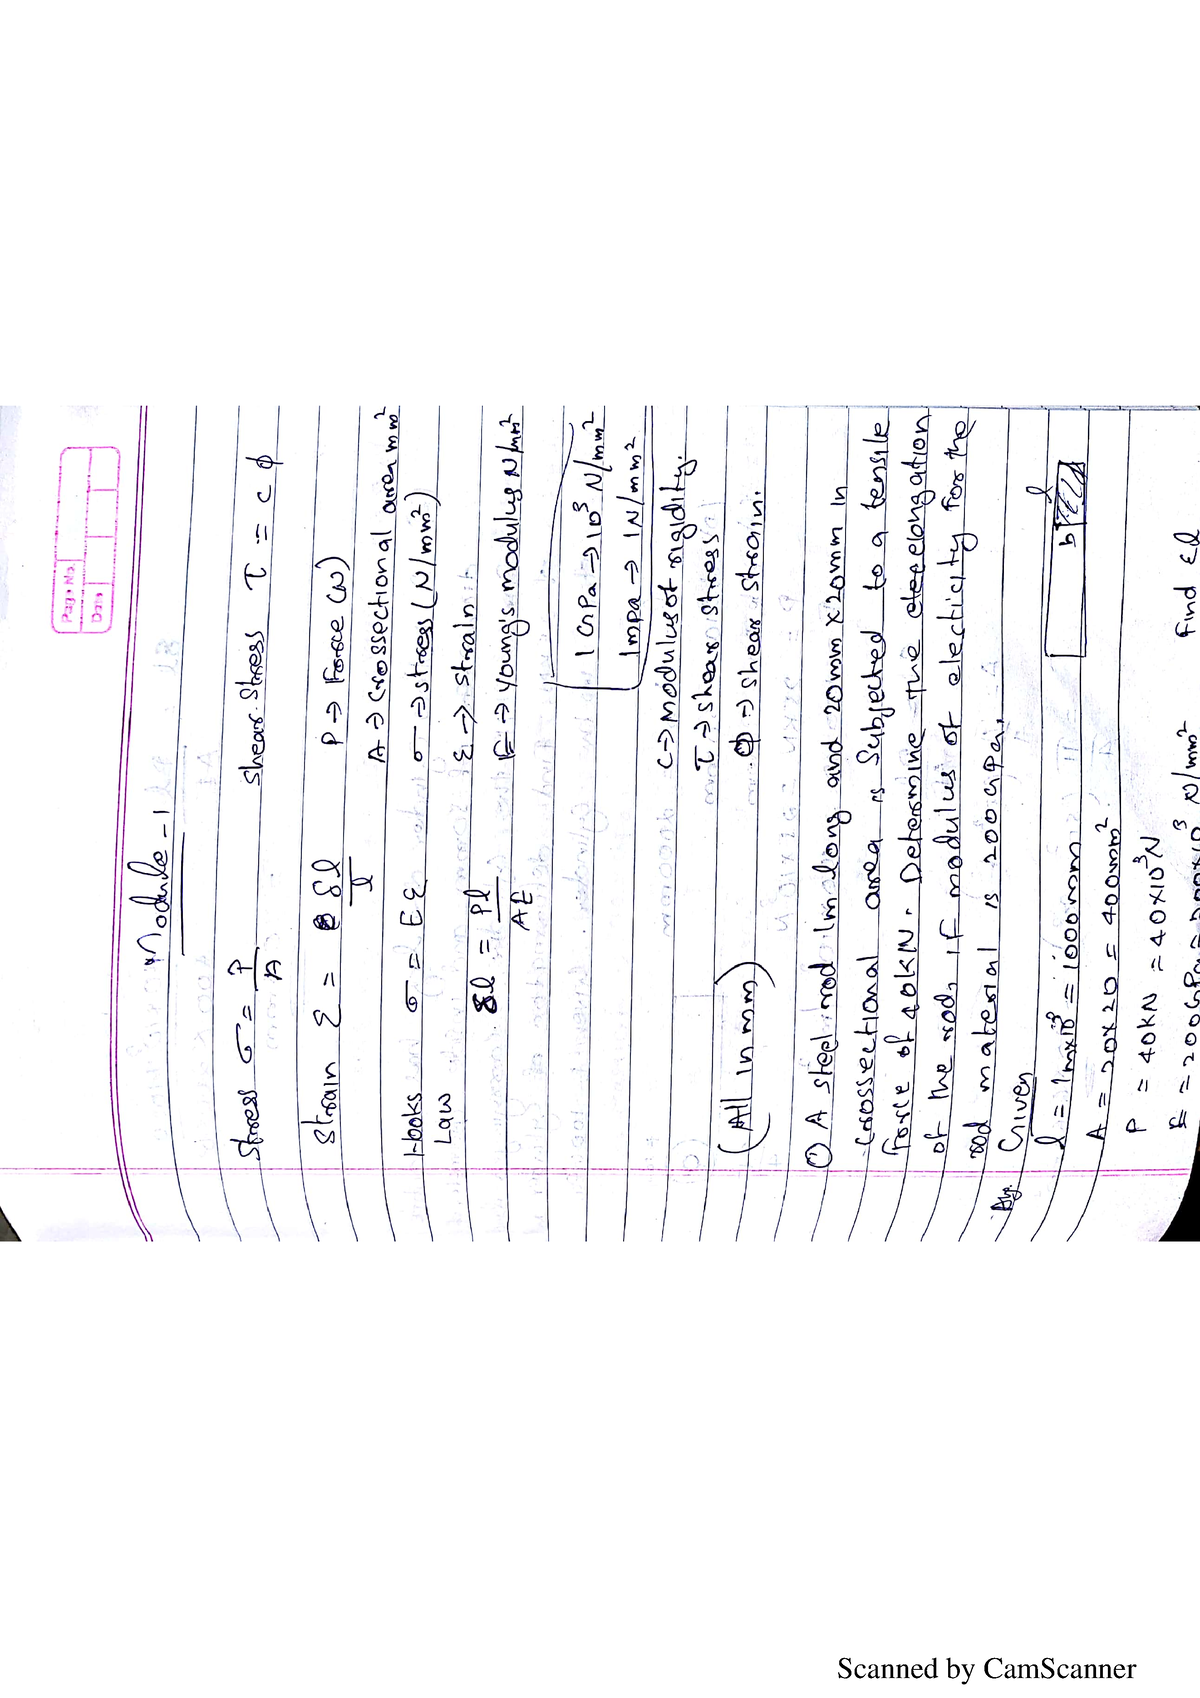 Page No.
Date
Module-1
Stress σ = P/A Shear Stress τ = c φ
Strain ε = δl/l P → Force (N)
A → Crossectional area mm²
Hooks Law σ = Eε σ → stress (N/mm²)
ε → strain
δl = Pl/AE E → young's modulus N/mm²
1 GPa → 10³ N/mm²
1mpa → 1N/mm²
C → Modulus of rigidity.
τ → shear stress
(All in mm) φ → shear strain.
① A steel rod 1m long and 20mm x 20mm in
crossectional area is Subjected to a tensile
force of 40KN. Determine the elongation
of the rod, if modulus of electicity for the
rod material is 200 GPa.
Given
l = 1mx10³ = 1000mm
b
A = 20x20 = 400mm²
P = 40KN = 40x10³N
E = 200GPa = 200x10³ N/mm² Find
Scanned by CamScanner